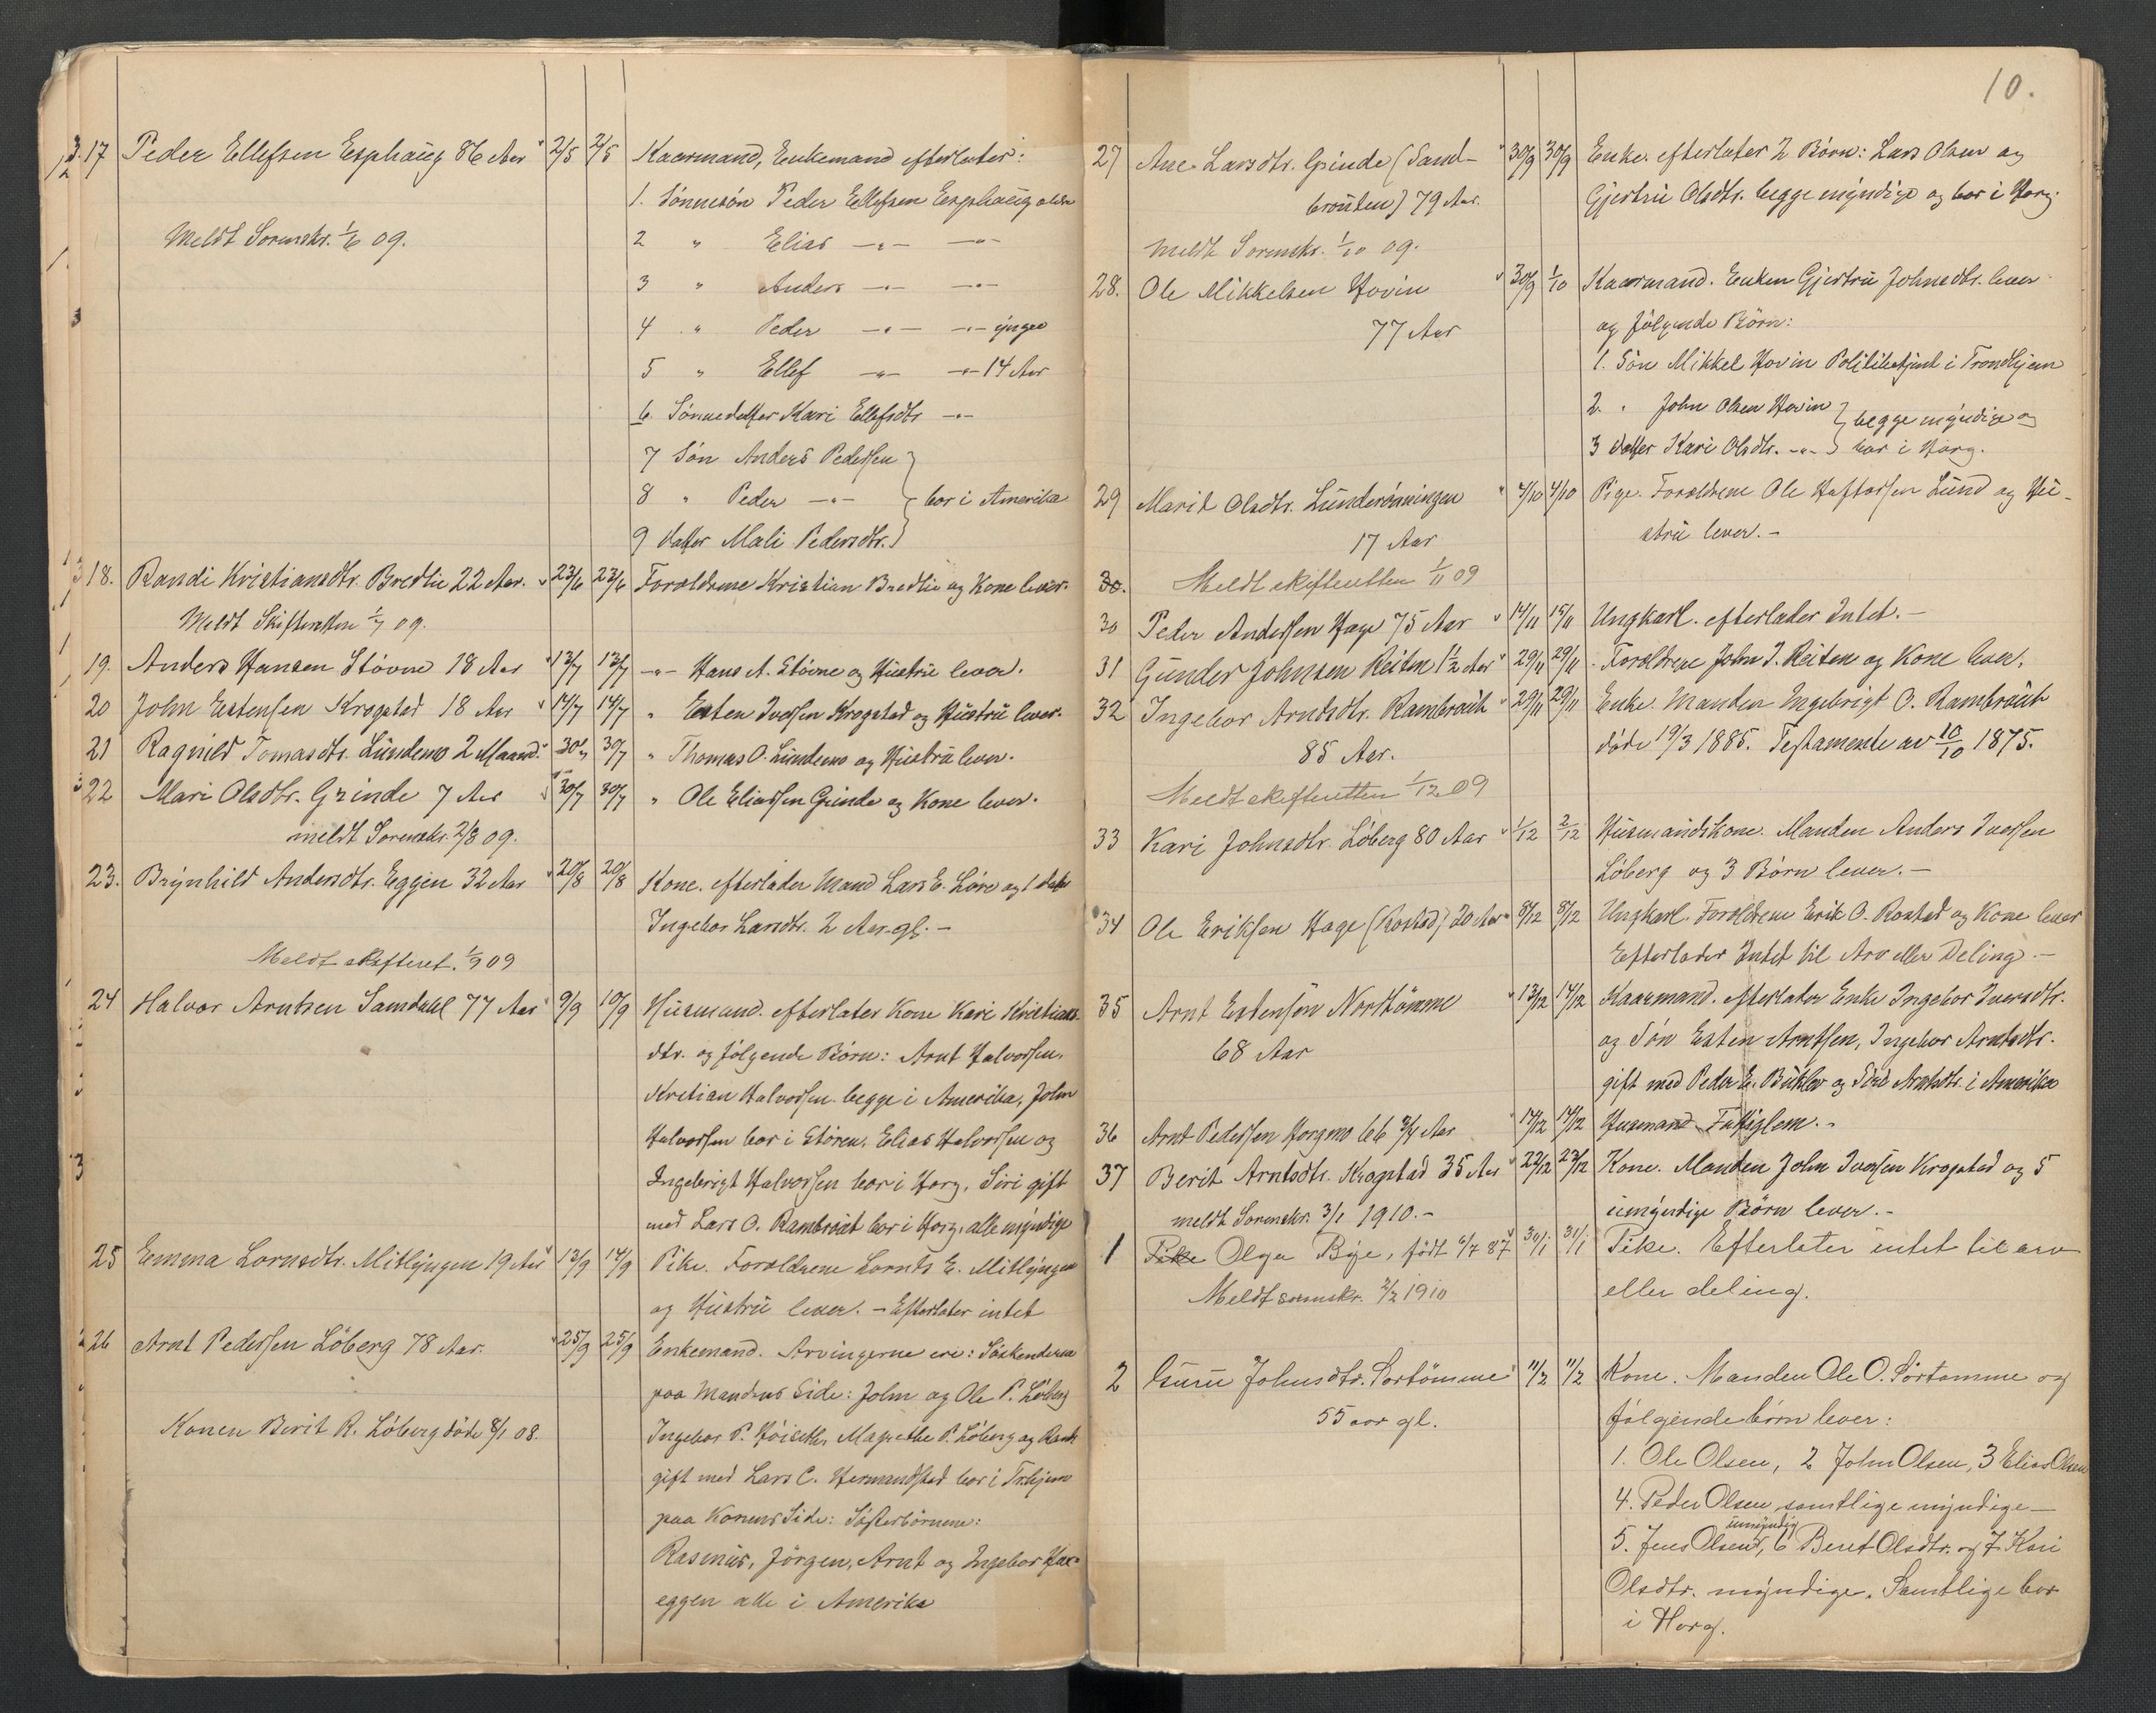 17 Peder Ellefsen Esphaug 86 Aar 2/5 2/5 Kaarmand, Enkemand efterlater:
1. Sønnesøn Peder Ellefsen Esphaug ældre
Meldt Sorenskr. 1/6 09.
2 " Elias -"- -"-
3 " Anders -"- -"-
4 " Peder -"- -"- yngre
5 " Ellef -"- -"- 14 Aar
6. Sønnedatter Kari Ellefsdtr -"-
7 Søn Anders Pedersen
8 " Peder -"- } bor i Amerika
9 Datter Mali Pedersdtr.
18. Randi Kristiansdtr. Bredlie 22 Aar. 23/6 23/6 Forældrene Kristian Bredlie og Kone lever.
Meldt Skifteretten 1/7 09.
19. Anders Hansen Støvne 18 Aar 13/7 13/7 -"- Hans A. Støvne og Hustru lever.
20 John Estensen Krogstad 18 Aar 14/7 14/7 " Esten Iversen Krogstad og Hustru lever.
21 Ragnild Tomasdtr. Lundemo 2 Maand. 30/7 30/7 " Thomas O. Lundemo og Hustru lever.
22 Mari Olsdtr. Grinde 7 Aar 30/7 30/7 " Ole Eliassen Grinde og Kone lever.
meldt Sorenskr. 2/8 09.
23. Brynhild Andersdtr. Eggen 32 Aar 20/8 20/8 Kone. efterlader Mand Lars E. Løre og 1 datter
Ingebor Larsdtr. 2 Aar gl. -
Meldt skifteret. 1/9 09
24 Halvor Arntsen Samdahl 77 Aar 9/9 10/9 Husmand. efterlater Kone Kari Kristians-
dtr. og følgende Børn: Arnt Halvorsen.
Kristian Halvorsen begge i Amerika, John
Halvorsen bor i Støren, Elias Halvorsen og
Ingebrigt Halvorsen bor i Horg, Siri gift
med Lars O. Rambraut bor i Horg, alle myndige
25 Emma Lorntsdtr. Mitlyngen 19 Aar 13/9 14/9 Pike. Forældrene Lornts E. Mitlyngen
og Hustru lever. - Efterlater intet
26 Arnt Pedersen Løberg 78 Aar. 25/9 25/9 Enkemand. Arvingerne ere: Søskenderna
paa Mandens Side: John og Ole P. Løberg
Konen Berit R. Løberg døde 8/1 08.
Ingebor P. Høiseth, Magrethe P. Løberg og
gift med Lars C. Hermandstad bor i Trhjem
paa Konens Side: Søsterbørnene:
Rasmus, Jörgen, Arnt og Ingebor Hax-
eggen alle i Amerika
10.
27 Ane Larsdtr. Grinde (Sand- 30/9 30/9 Enke. efterlater 2 Børn: Lars Olsen og
brauten) 79 Aar. Gjertru Olsdtr. begge myndige og bor i Horg.
meldt Sorenskr. 1/10 09.
28. Ole Mikkelsen Hovin 30/9 1/10 Kaarmand. Enken Gjertru Johnsdtr. lever
77 Aar og følgende Børn:
1. Søn Mikkel Hovin Politibetjent i Trondhjem
2. " John Olsen Hovin } begge myndige og
3 datter Kari Olsdtr. -"- } bor i Horg.
29 Marit Olsdtr. Lunderønningen 4/10 4/10 Pige. Forældrene Ole Haftorsen Lund og Hu-
17 Aar stru lever. -
30. Meldt skifteretten 1/11 09
30 Peder Andersen Hage 75 Aar 14/11 15/11 Ungkarl. efterlader Intet. -
31 Gunder Johnsen Reiten 1 1/2 Aar 29/11 29/11 Forældrene John J. Reiten og Kone lever.
32 Ingebor Arntsdtr. Rambraut 29/11 29/11 Enke. Manden Ingebrigt O. Rambraut
85 Aar. døde 19/3 1885. Testamente av 10/10 1875.
Meldt skifteretten 1/12 09
33 Kari Johnsdtr. Løberg 80 Aar 1/12 2/12 Husmandskone. Manden Anders Iversen
Løberg og 3 Børn lever. -
34 Ole Eriksen Hage (Rostad) 20 Aar 8/12 8/12 Ungkarl. Forældrene Erik O. Rostad og Kone lever
Efterlader Intet til Arv eller Deling. -
35 Arnt Estensen Nordtømme 13/12 14/12 Kaarmand. efterlater Enke Ingebor Iversdtr.
68 Aar og Søn Esten Arntsen, Ingebor Arntsdtr.
gift med Peder E. og Siri Arntsdtr. i Amerika
36 Arnt Pedersen Horgmo 66 3/4 Aar 14/12 14/12 Husmand. Fattiglem. -
37 Berit Arntsdtr. Krogstad 35 Aar 22/12 23/12 Kone. Manden John Iversen Krogstad og 5
meldt Sorenskr. 3/1 1910. - umyndige Børn lever. -
1 Pike Olga Bye, født 6/7 87 30/1 31/1 Pike. Efterlater intet til arv
Meldt sorenskr. 2/2 1910 eller deling.
2 Guru Johnsdtr. Sørtømme 11/2 11/2 Kone. Manden Ole O. Sørtømme og
55 aar gl. følgende børn lever:
1. Ole Olsen, 2 John Olsen, 3 Elias Olsen
4. Peder Olsen samtlige myndige -
umyndig
5. Jens Olsen, 6 Beret Olsdtr. og 7. Kari
Olsdtr. myndige. Samtlige bor
i Horg.